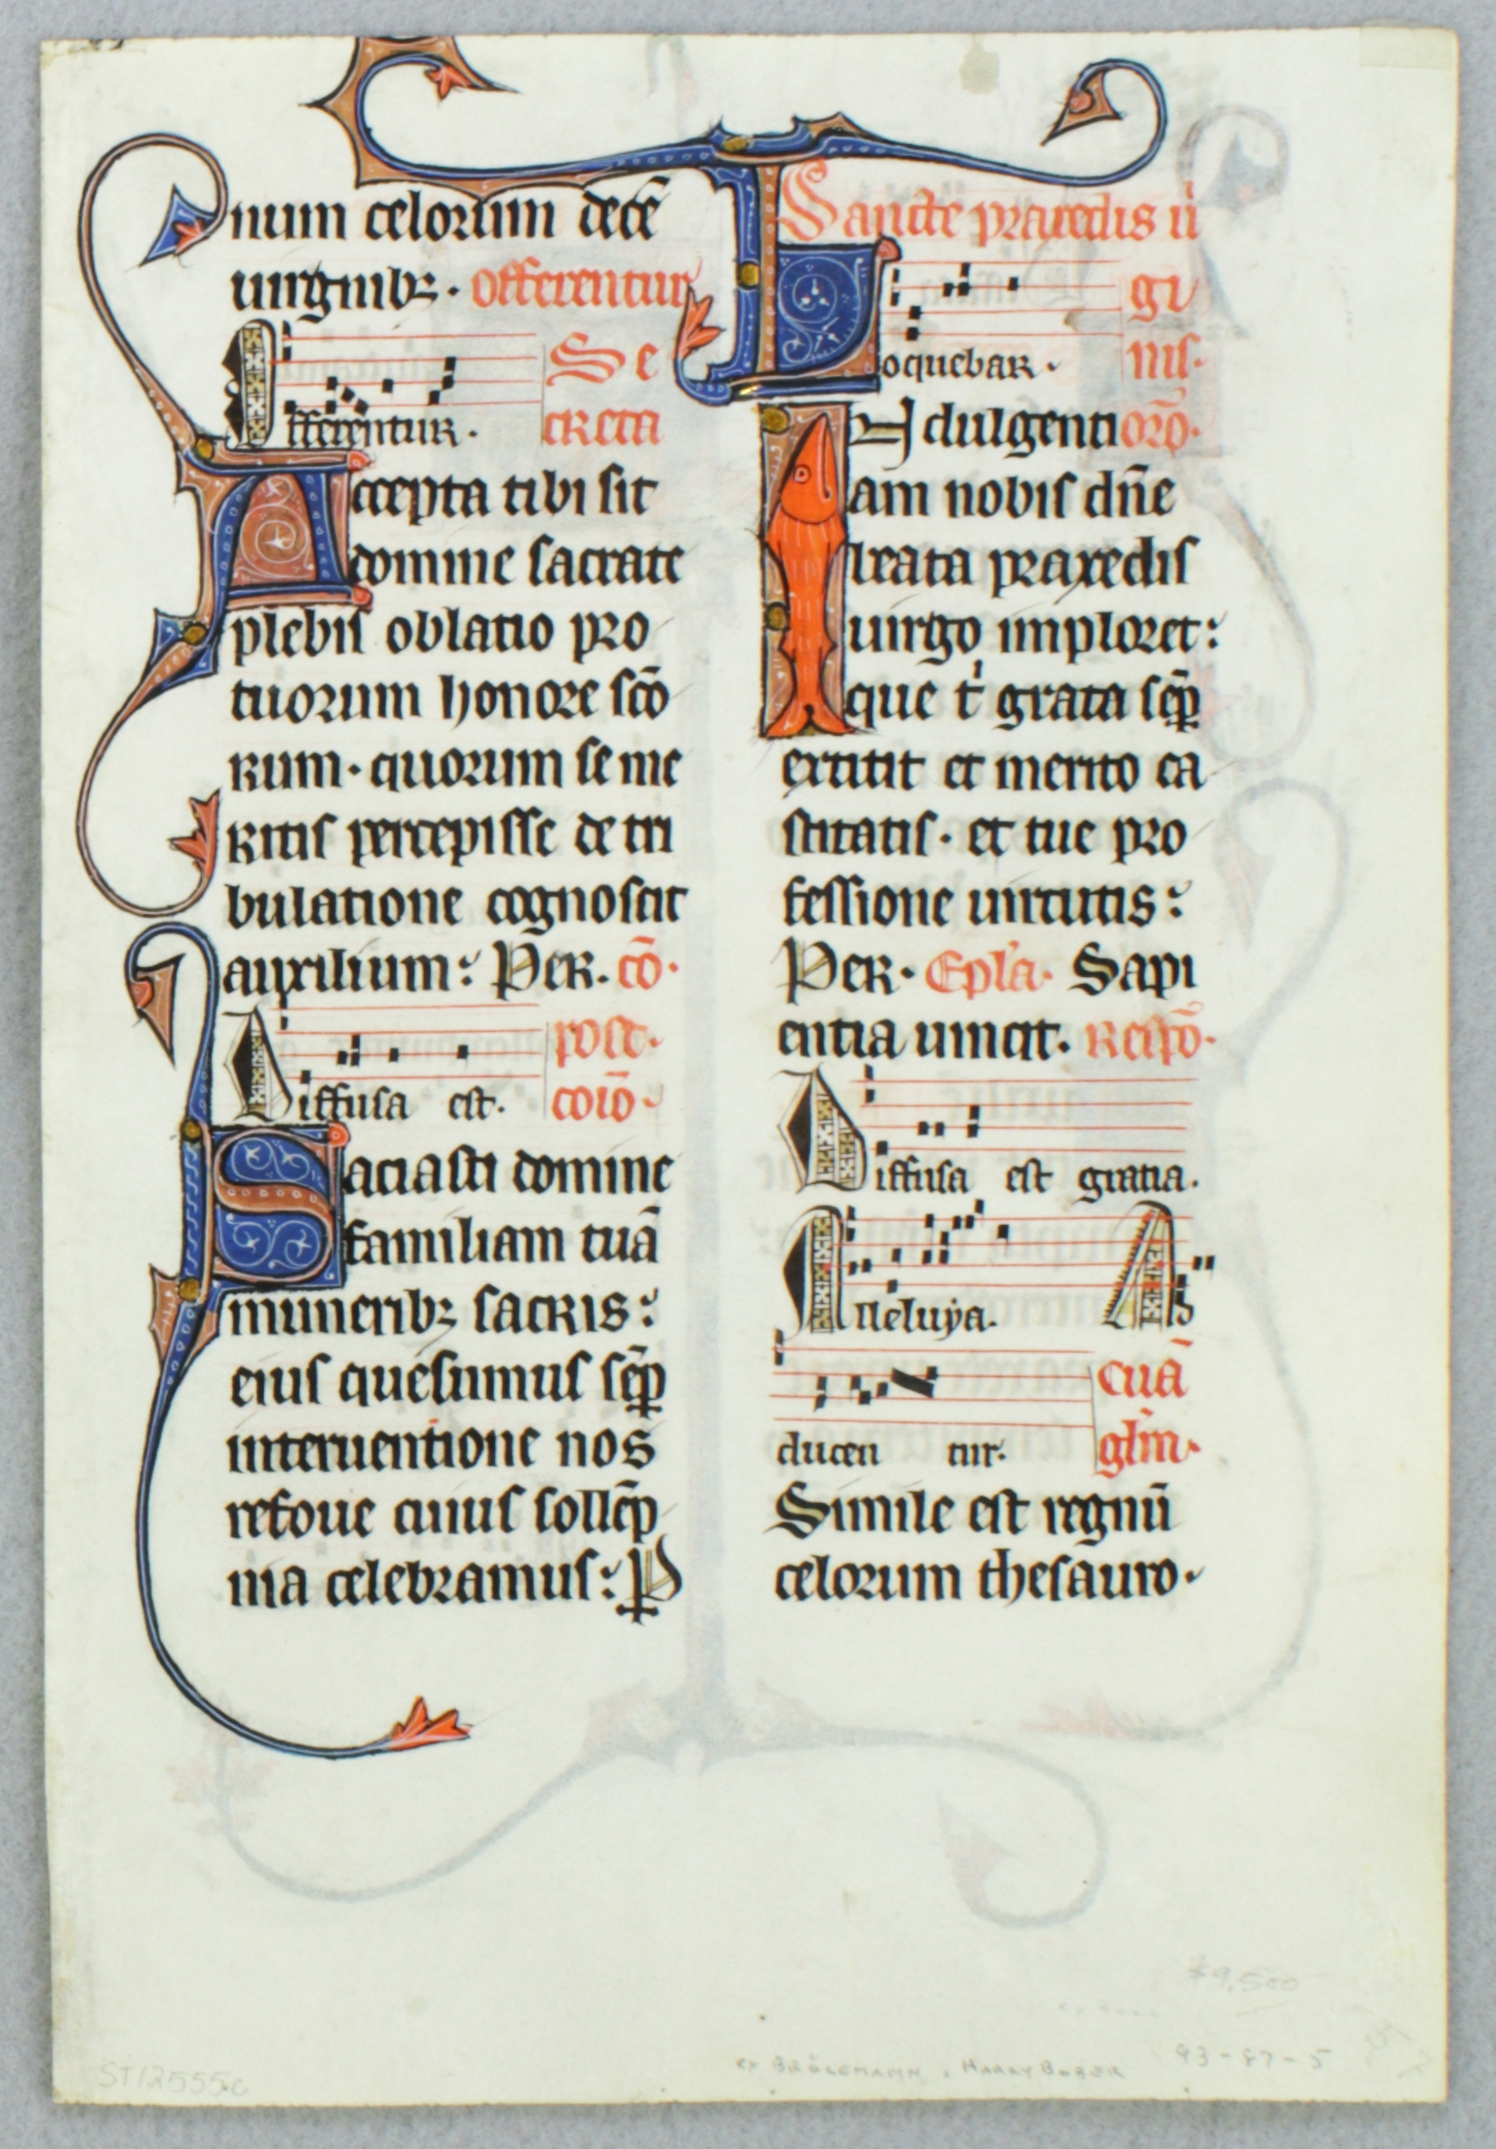 num celorum decē
uirginibꝫ. Offerentur
Se
Offerentur. creta
Accepta tibi sit
domine sacrate
plebis oblatio pro
tuorum honore scō
rum. quorum se me
ritis percepisse de tri
bulatione cognoscit
auxilium: Per. cō.
post
Diffusa est. coīo.
Saciasti domine
familiam tuā
muneribꝫ sacris:
eius quesumus sēp
interuentione nos
refoue cuius sollēp
nia celebramus: P
Sancte praxedis ui
gi
Loquebar. nis.
INdulgenti orō.
am nobis dn̄e
beata praxedis
uirgo imploret:
que t' grata sēp
extitit et merito ca
stitatis. et tue pro
fessione uirtutis:
Per. Epl'a. Sapi
entia uincit. Respō.
Diffusa est gratia.
Alleluya. Ad
cuā
ducen tur. glm.
Simile est regnū
celorum thesauro.
$9,500
ex BRÖLEMANN, HARRY BOBER 93-87-5
ST12555c